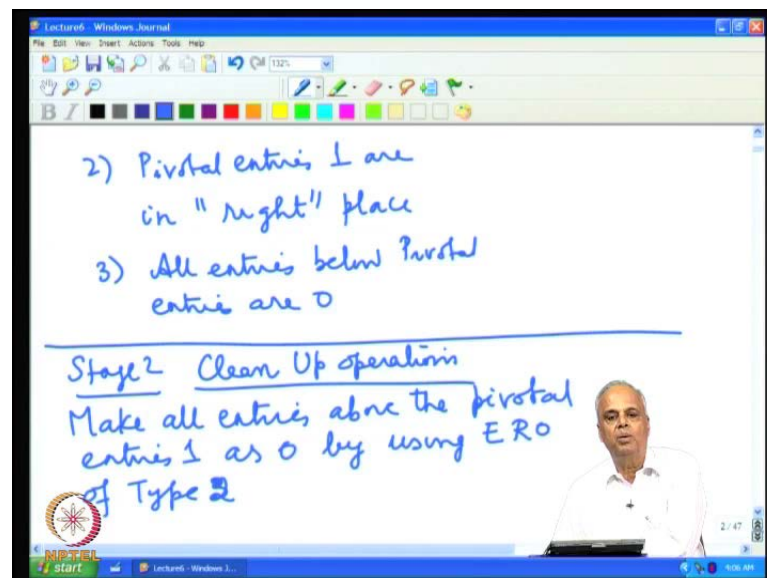 Lecture6 - Windows Journal
File Edit View Insert Actions Tools Help
132%
B I
2) Pivotal entries 1 are
in "right" place
3) All entries below Pivotal
entries are 0
Stage 2 Clean Up operations
Make all entries above the pivotal
entries 1 as 0 by using ERO
of Type 2
2 / 47
NPTEL
start
Lecture6 - Windows J...
4:06 AM